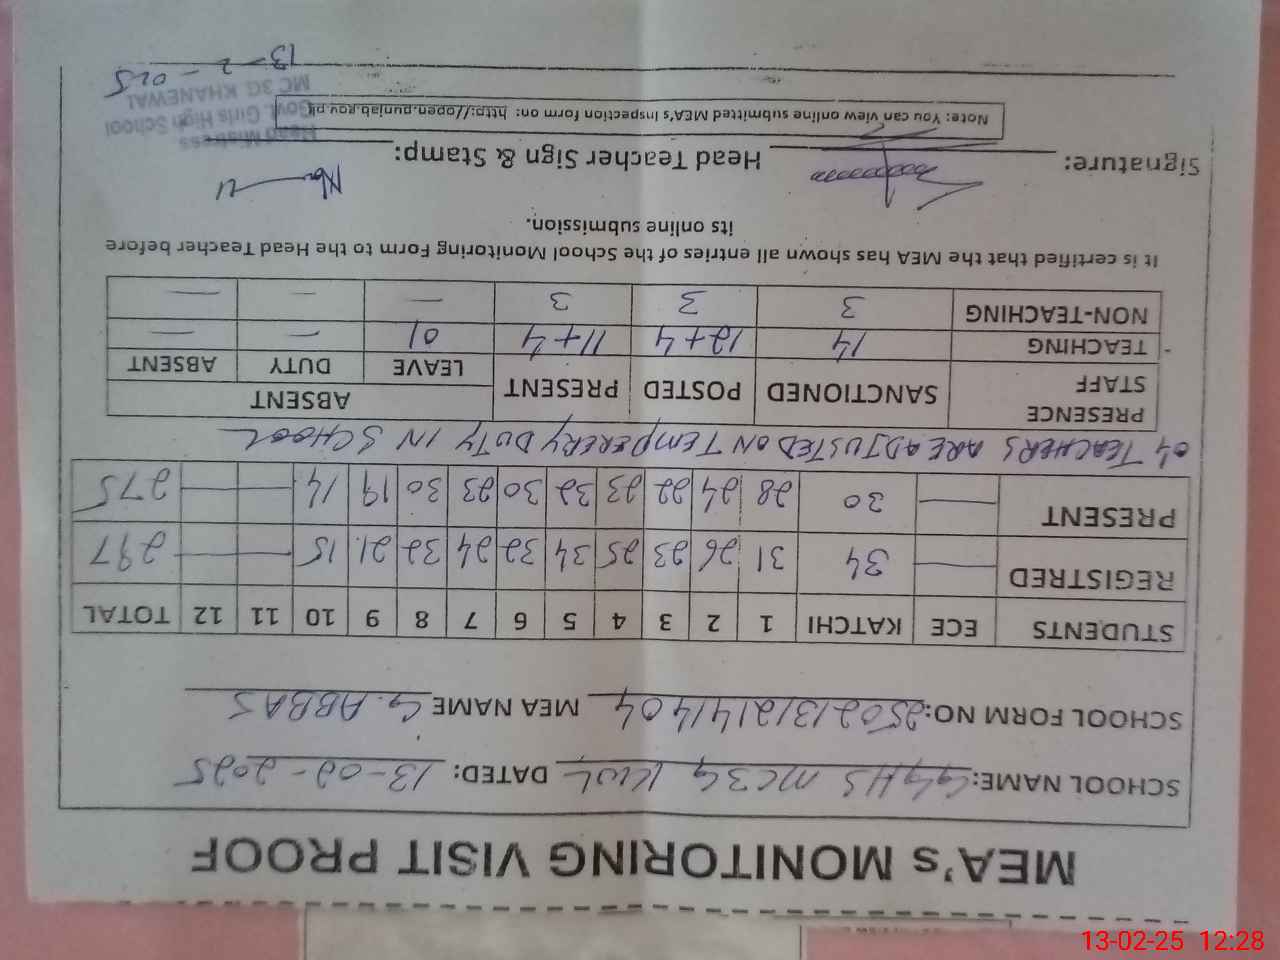 MEA's MONITORING VISIT PROOF
SCHOOL NAME: GGHS MC3G KWL DATED: 13-02-2025
SCHOOL FORM NO: 25021312141404 MEA NAME G. ABBAS
STUDENTS ECE KATCHI 1 2 3 4 5 6 7 8 9 10 11 12 TOTAL
REGISTRED — 34 31 26 23 25 34 32 24 32 21 15 — — 297
PRESENT — 30 28 24 22 23 32 30 23 30 19 14 — — 275
04 TEACHERS ARE ADJUSTED ON TEMPERERY DUTY IN SCHOOL
PRESENCE STAFF SANCTIONED POSTED PRESENT ABSENT
LEAVE DUTY ABSENT
TEACHING 14 12+4 11+4 01 — —
NON-TEACHING 3 3 3 — — —
It is certified that the MEA has shown all entries of the School Monitoring Form to the Head Teacher before
its online submission.
Signature: Head Teacher Sign & Stamp:
Note: You can view online submitted MEA's Inspection form on: http://open.punjab.gov.pk
Head Mistress
Govt. Girls High School
MC 3G KHANEWAL
13-2-025
13-02-25 12:28